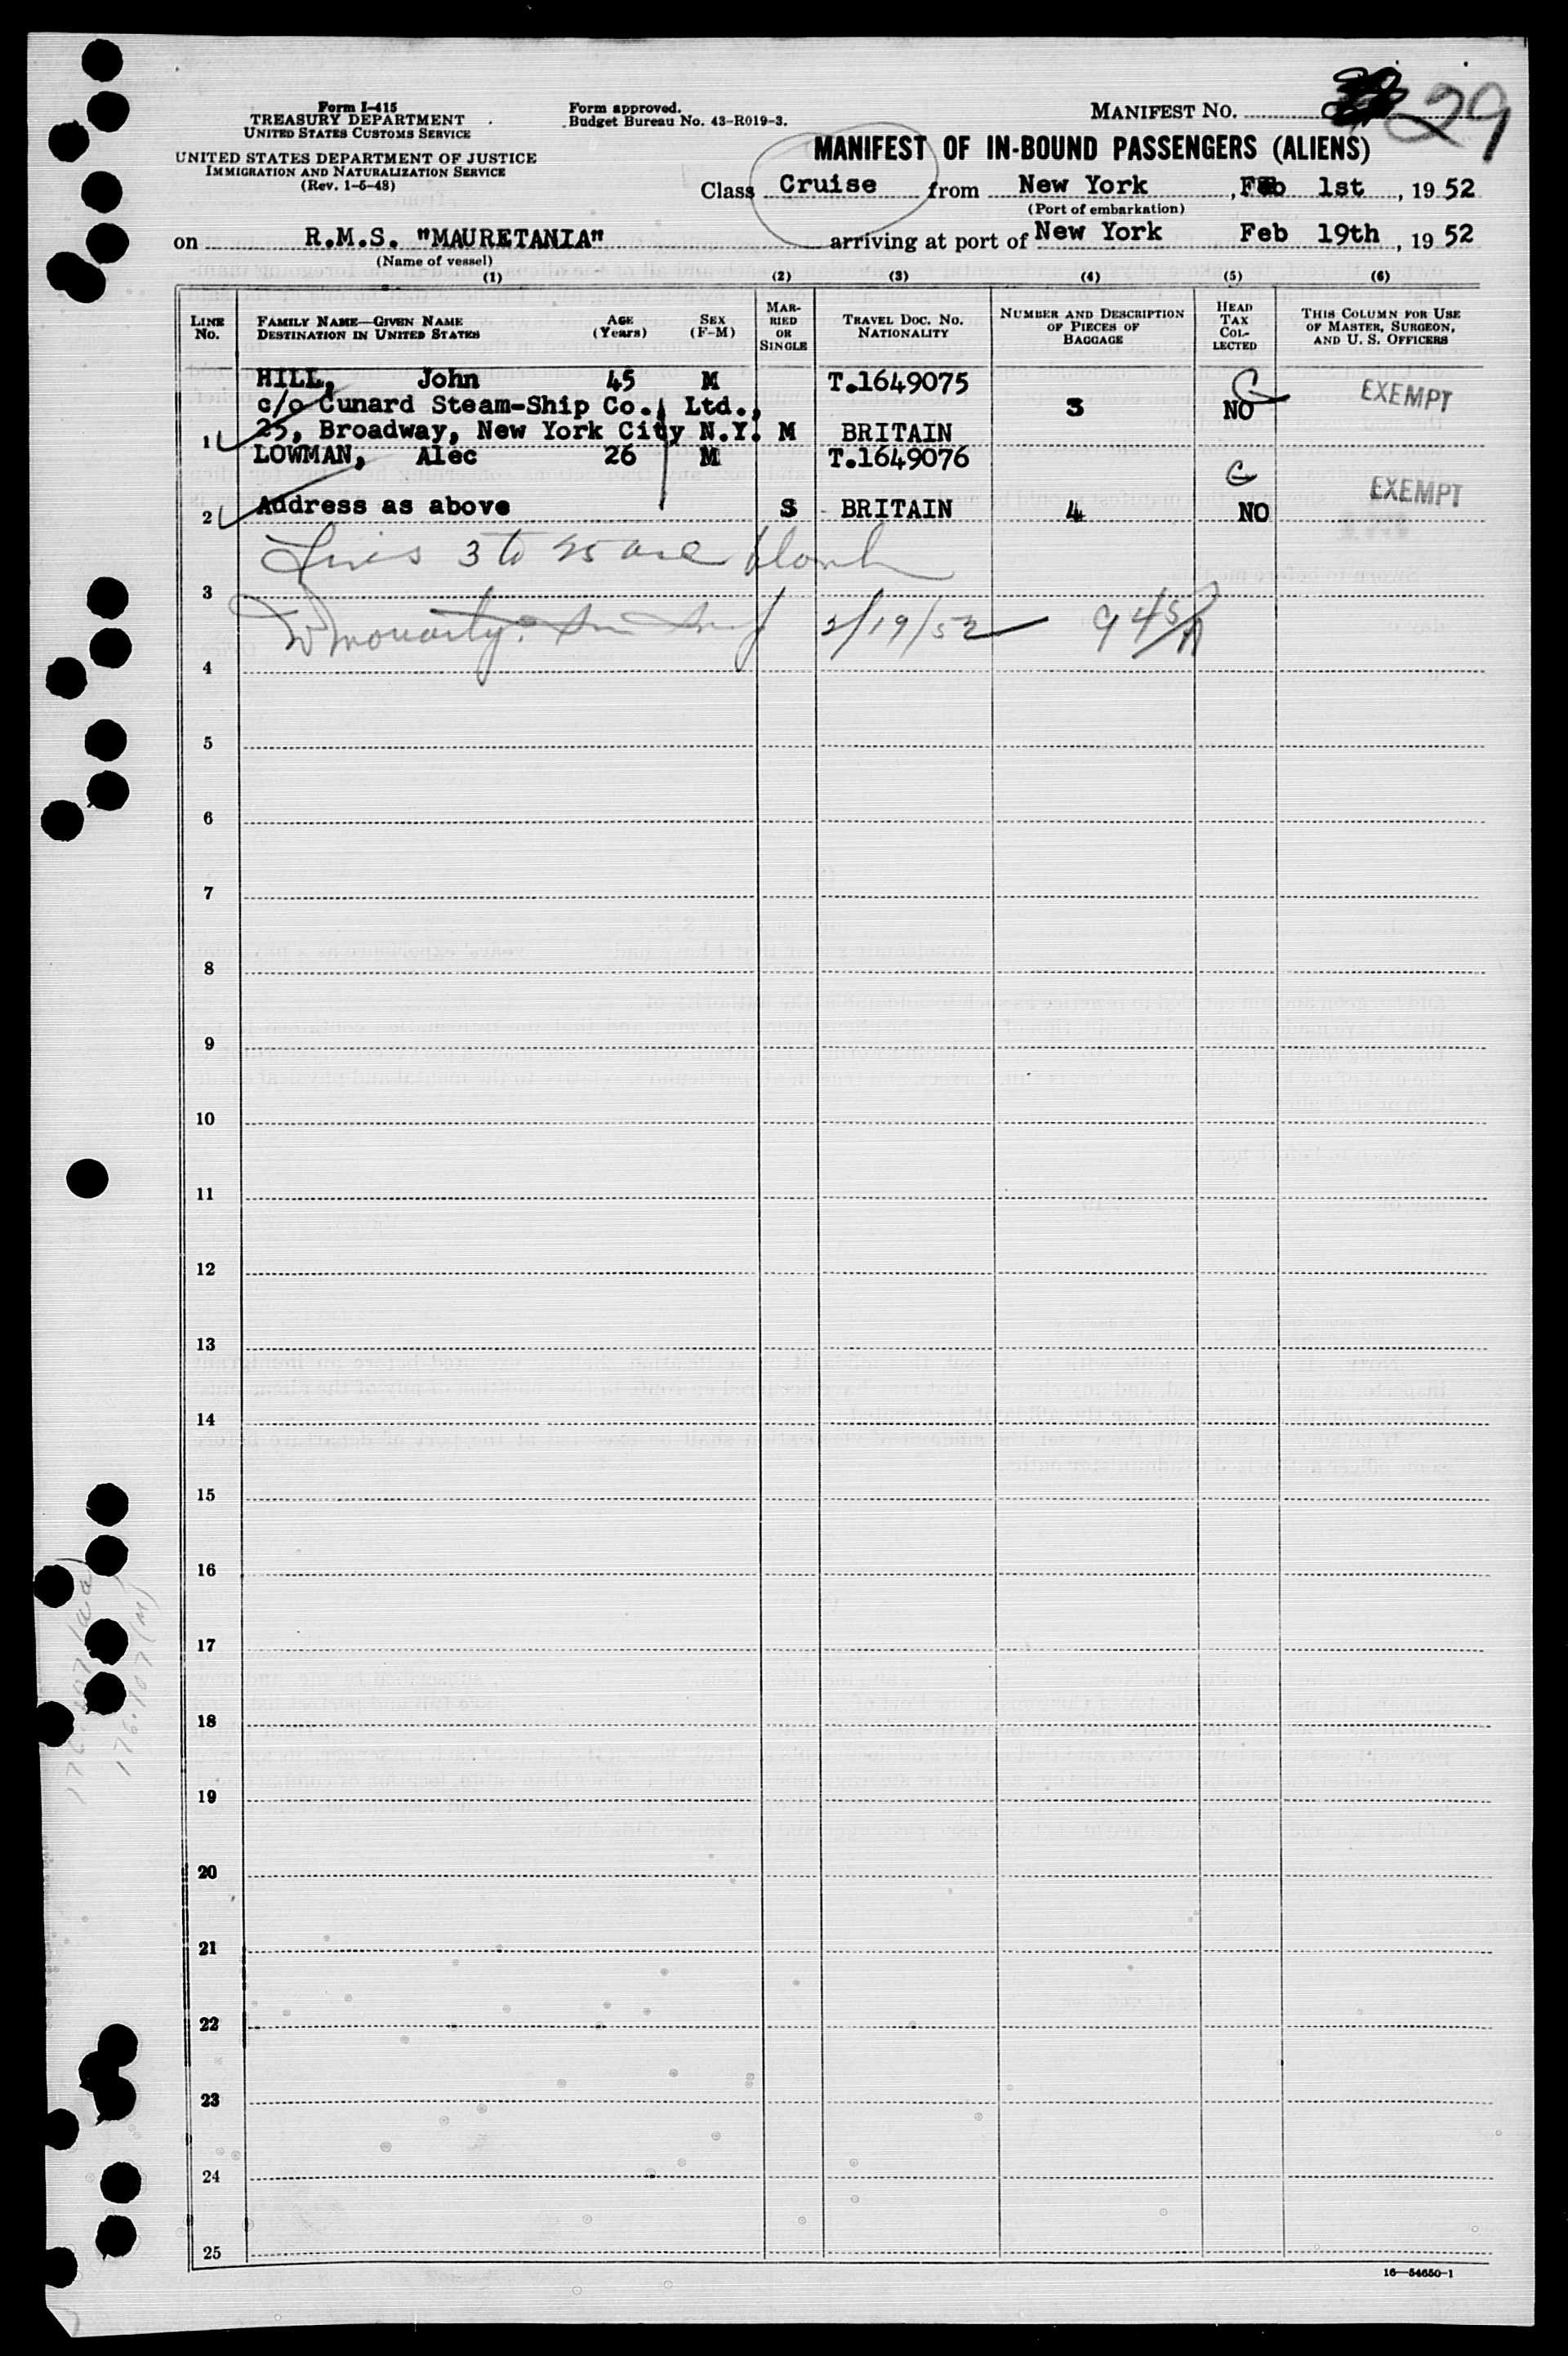 Form I-415
TREASURY DEPARTMENT
UNITED STATES CUSTOMS SERVICE
UNITED STATES DEPARTMENT OF JUSTICE
IMMIGRATION AND NATURALIZATION SERVICE
(Rev. 1-6-48)
Form approved.
Budget Bureau No. 43-R019-3.
MANIFEST NO. 29
MANIFEST OF IN-BOUND PASSENGERS (ALIENS)
Class Cruise from New York, Feb 1st, 19 52
(Port of embarkation)
on R.M.S. "MAURETANIA" arriving at port of New York Feb 19th, 19 52
(Name of vessel)
(1) (2) (3) (4) (5) (6)
LINE No. FAMILY NAME—GIVEN NAME DESTINATION IN UNITED STATES AGE (Years) SEX (F-M) MARRIED OR SINGLE TRAVEL DOC. NO. NATIONALITY NUMBER AND DESCRIPTION OF PIECES OF BAGGAGE HEAD TAX COLLECTED THIS COLUMN FOR USE OF MASTER, SURGEON, AND U. S. OFFICERS
HILL, John 45 M T.1649075 EXEMPT
c/o Cunard Steam-Ship Co., Ltd., 3 NO
1 25, Broadway, New York City N.Y. M BRITAIN
LOWMAN, Alec 26 M T.1649076 EXEMPT
2 Address as above S BRITAIN 4 NO
Lines 3 to 25 are blank
3
2/19/52
4
5
6
7
8
9
10
11
12
13
14
15
16
17
18
19
20
21
22
23
24
25
16—54650-1